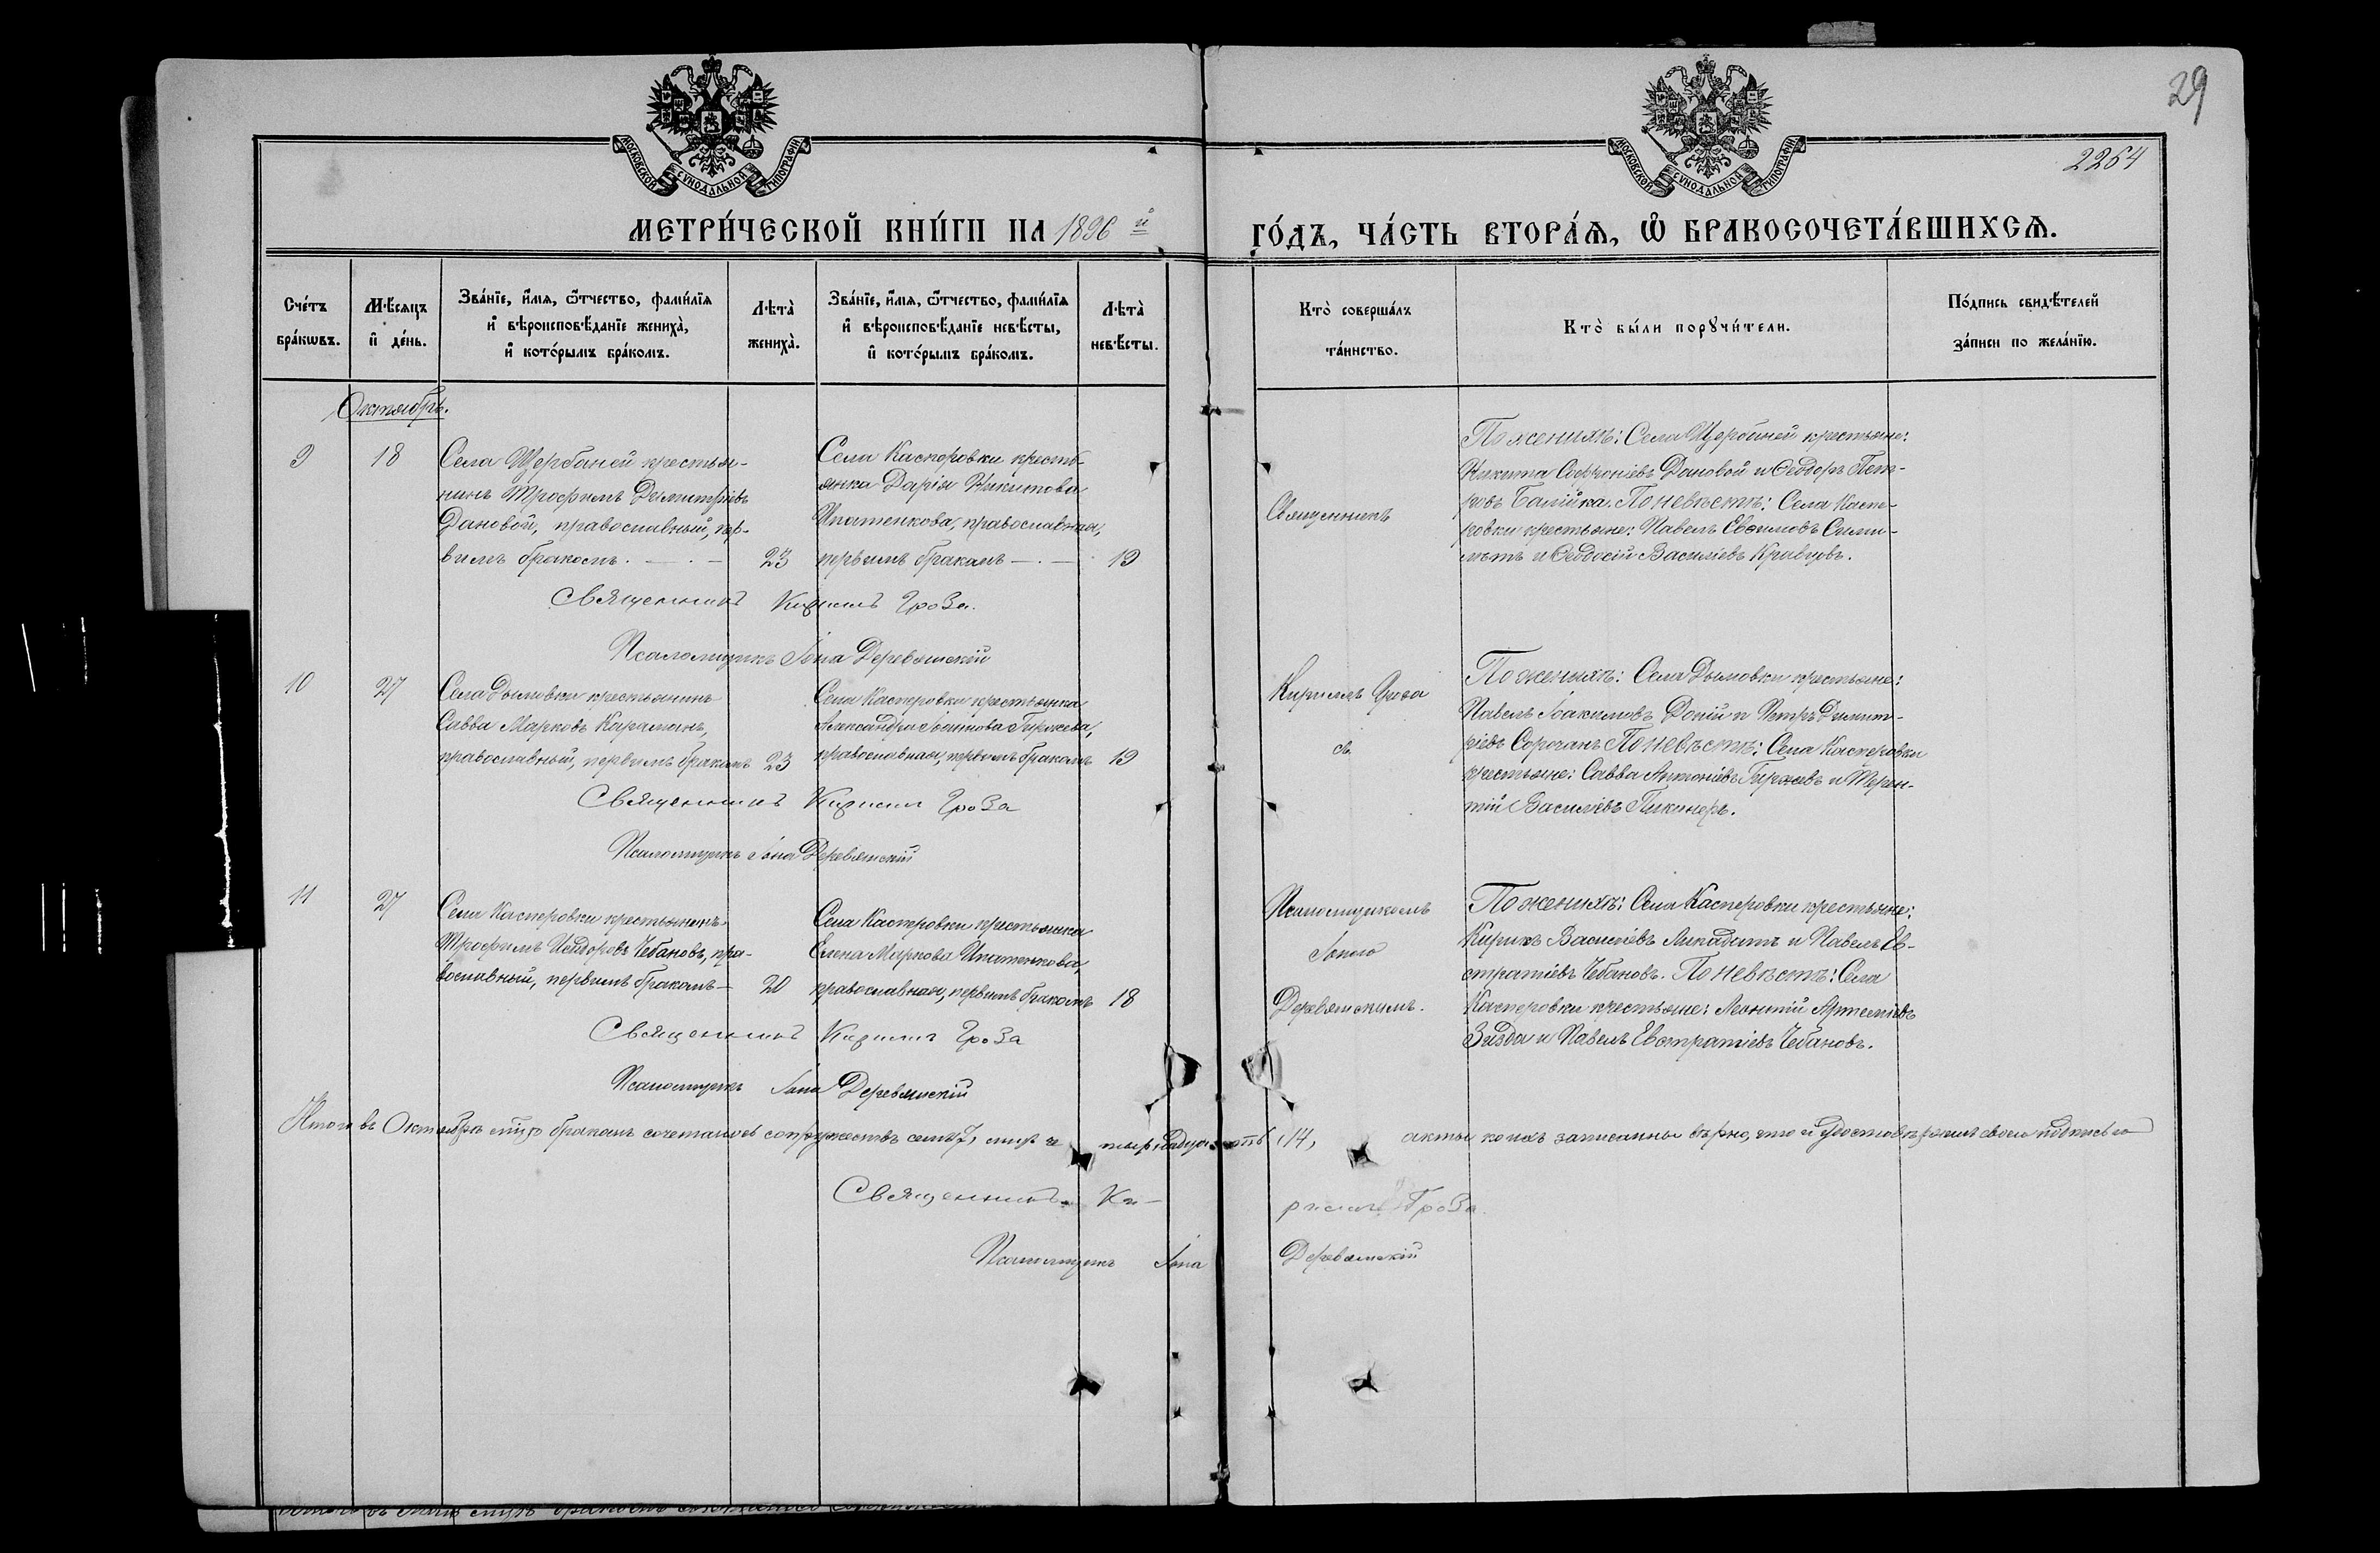 29
2254
МОСКОВСКОЙ СѴНОДАЛЬНОЙ ТИПОГРАФІИ
МОСКОВСКОЙ СѴНОДАЛЬНОЙ ТИПОГРАФІИ
МЕТРИ́ЧЕСКОЙ КНИ́ГИ НА 1896 й
ГО́ДЪ, ЧА́СТЬ ВТОРА́Ѧ, Ѡ҆ БРАКОСОЧЕТА́ВШИХСѦ.
Сче́тъ бра́кѡвъ.
Мѣ́сѧцъ и҆ де́нь.
Зва́нїе, и҆́мѧ, ѻ҆́тчество, фами́лїѧ
и҆ вѣроисповѣ́данїе жениха̀,
и҆ кото́рымъ бра́комъ.
Лѣта̀ жениха̀.
Зва́нїе, и҆́мѧ, ѻ҆́тчество, фами́лїѧ
и҆ вѣроисповѣ́данїе невѣ́сты,
и҆ кото́рымъ бра́комъ.
Лѣта̀ невѣ́сты.
Кто̀ соверша́лъ
та́инство.
Кто̀ бы́ли порꙋчи́тели.
По́дпись свидѣ́телей
за́писи по жела́нїю.
Октябрь.
9
18
Села Щербаней крестья-
нинъ Трофимъ Димитріевъ
Дановой, православный, пер-
вымъ бракомъ. — . —
23
Села Касперовки кресть-
янка Дарія Никитова
Ипатенкова, православная,
первымъ бракомъ — . —
19
Священникъ
По женихѣ: Села Щербаней крестьяне:
Никита Софроніевъ Дановой и Феодоръ Пет-
ровъ По невѣстѣ: Села Каспе-
ровки крестьяне: Павелъ
и Феодосій Василіевъ Кравцовъ.
Священникъ Кириллъ Гроза.
Псаломщикъ Іона Деревянскій
10
27
Села Дымовки крестьянинъ
Савва Марковъ Караманъ,
православный, первымъ бракомъ
23
Села Касперовки крестьянка
Александра Гиржева,
православная, первымъ бракомъ
19
Кириллъ Гроза
съ
По женихѣ: Села Дымовки крестьяне:
Павелъ Іоакимовъ Доній и Петръ Димит-
ріевъ Сорочанъ По невѣстѣ: Села Касперовки
крестьяне: Савва Антоніевъ Гиржевъ и Терен-
тій Василіевъ Пиконеръ.
Священникъ Кириллъ Гроза
Псаломщикъ Іона Деревянскій
11
27
Села Касперовки крестьянинъ
Трофимъ Исидоровъ Чебановъ, пра-
вославный, первымъ бракомъ —
20
Села Касперовки крестьянка
Елена Маркова Ипатенкова,
православная, первымъ бракомъ
18
Псаломщикомъ
Іоною
Деревянскимъ.
По женихѣ: Села Касперовки крестьяне:
Кирикъ Василіевъ и Павелъ Ев-
стратіевъ Чебановъ. По невѣстѣ: Села
Касперовки крестьяне: Леонтій Артеміевъ
и Павелъ Евстратіевъ Чебановъ.
Священникъ Кириллъ Гроза
Псаломщикъ Іона Деревянскій
Итого въ Октябрѣ мцѣ бракомъ сочеталось супружествъ семь 7, лицъ четырнадцать (14, акты коихъ записаны вѣрно, что и удостовѣряемъ своею подписью
Священникъ Кириллъ Гроза.
Псаломщикъ Іона Деревянскій